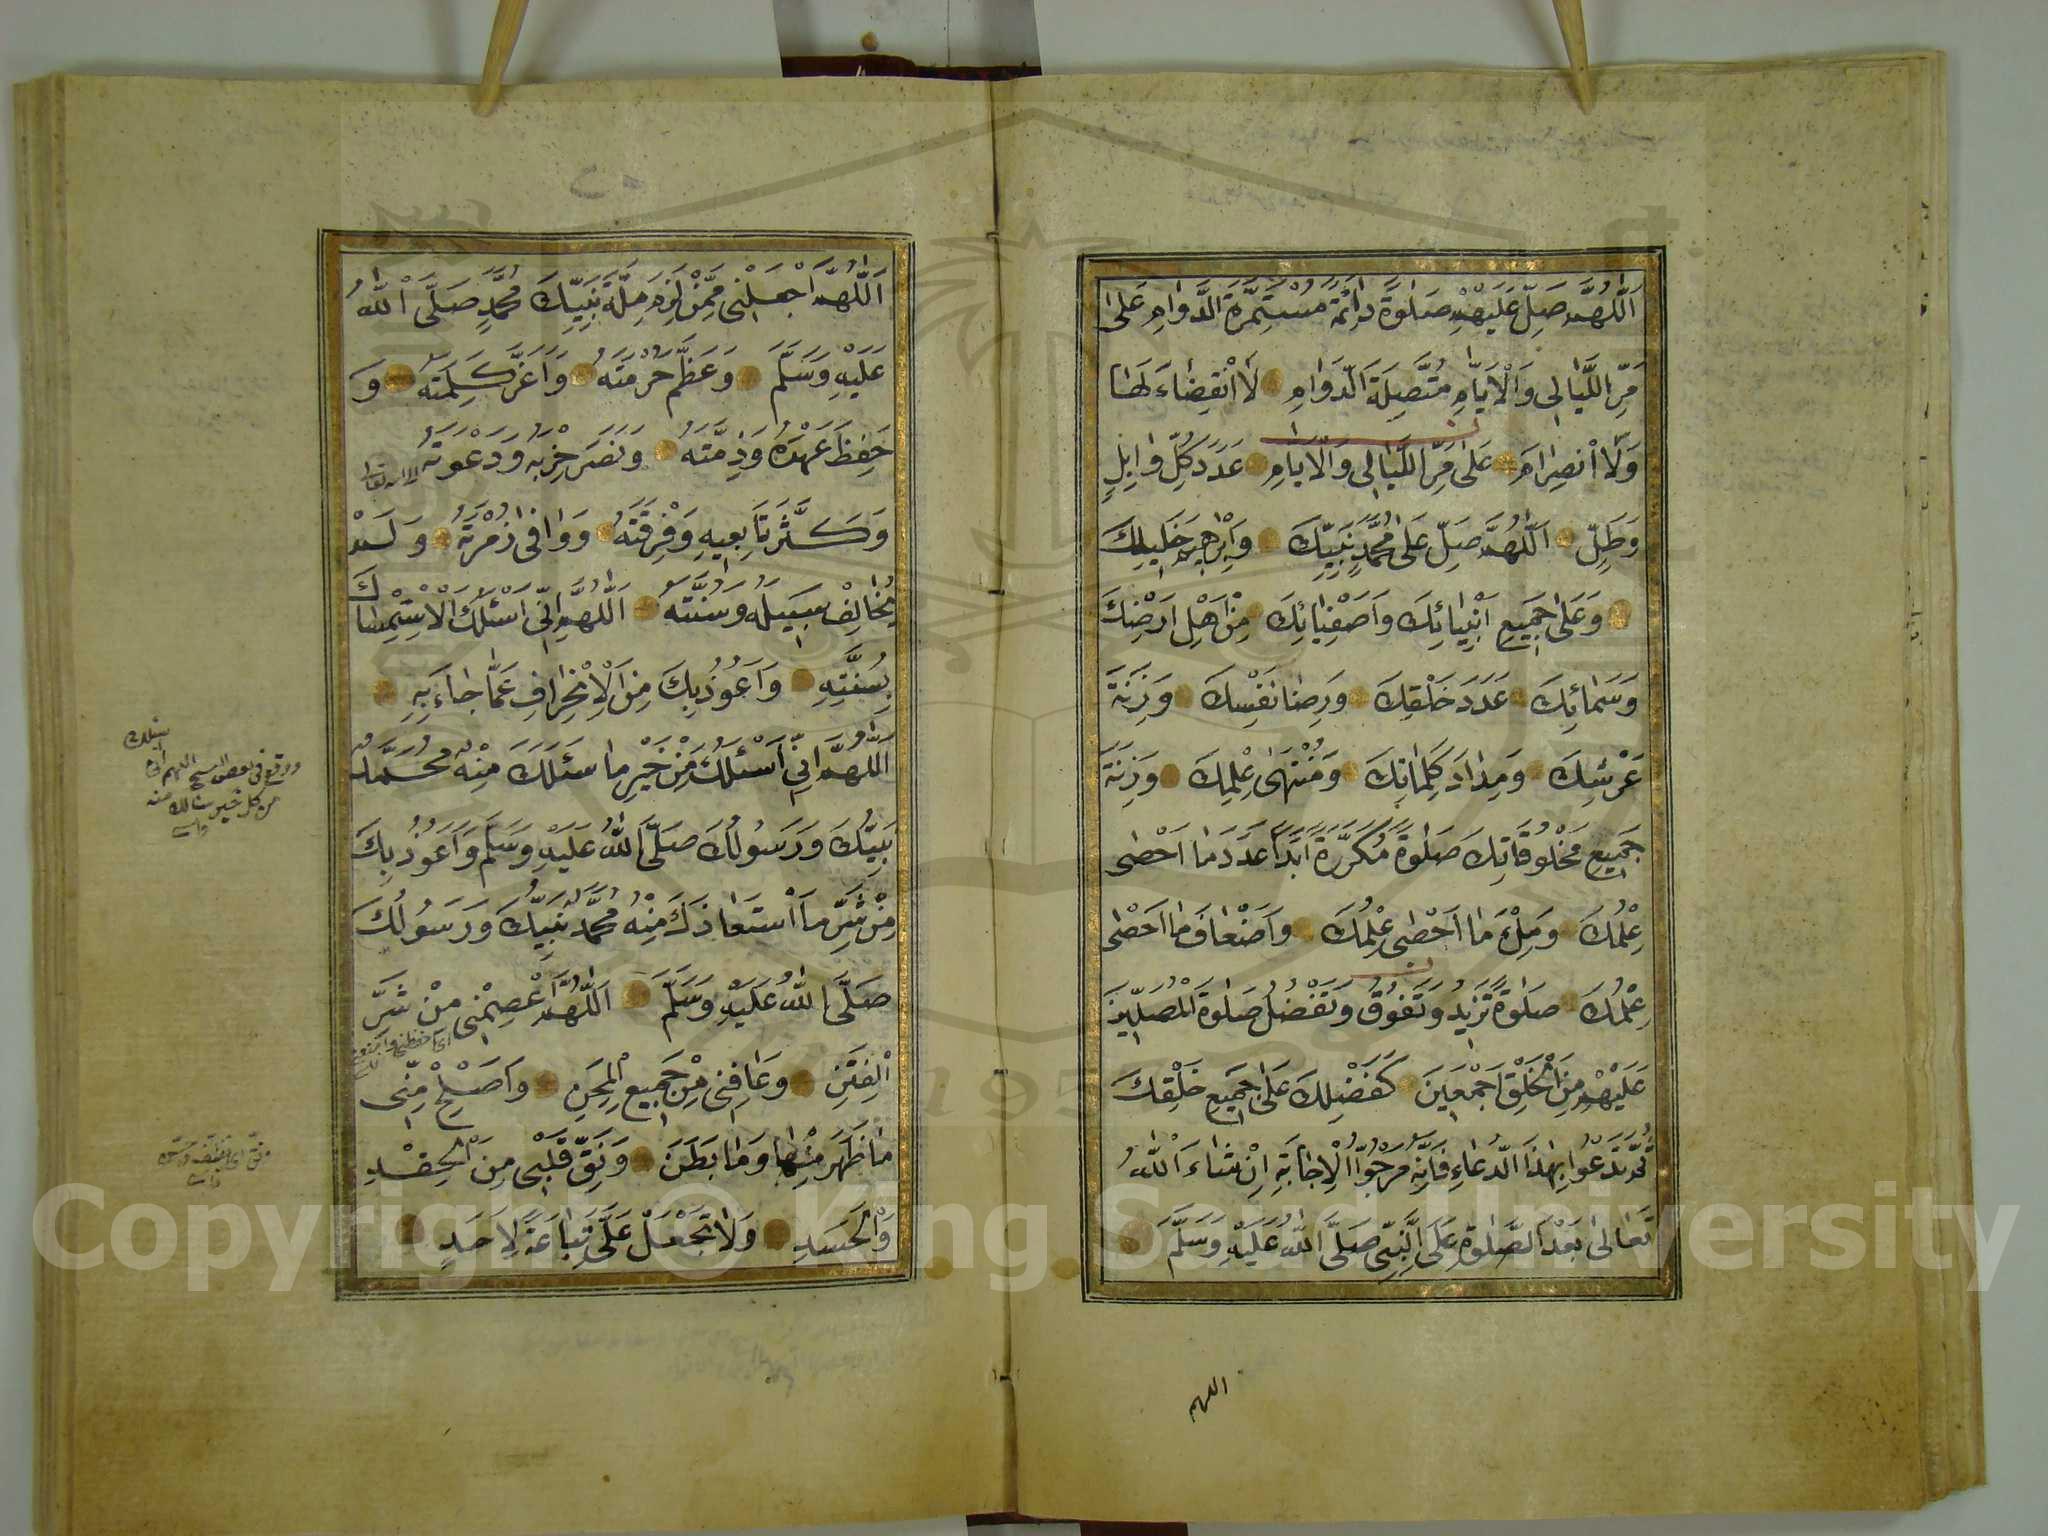 اَللّٰهُمَّ صَلِّ عَلَيْهِمْ صَلٰوةً دَائِمَةً مُسْتَمِرَّةَ الدَّوَامِ عَلٰى
مَرِّ اللَّيَالِى وَالْاَيَّامِ مُتَّصِلَةَ الدَّوَامِ لَا انْقِضَاءَ لَهَا
وَلَا انْصِرَامَ عَلٰى مَرِّ اللَّيَالِى وَالْاَيَّامِ عَدَدَ كُلِّ وَابِلٍ
وَطَلٍّ اَللّٰهُمَّ صَلِّ عَلٰى مُحَمَّدٍ نَبِيِّكَ وَاِبْرٰهِيمَ خَلِيلِكَ
وَعَلٰى جَمِيعِ اَنْبِيَائِكَ وَاَصْفِيَائِكَ مِنْ اَهْلِ اَرْضِكَ
وَسَمَائِكَ عَدَدَ خَلْقِكَ وَرِضَا نَفْسِكَ وَزِنَةَ
عَرْشِكَ وَمِدَادَ كَلِمَاتِكَ وَمُنْتَهٰى عِلْمِكَ وَزِنَةَ
جَمِيعِ مَخْلُوقَاتِكَ صَلٰوةً مُكَرَّرَةً اَبَدًا عَدَدَ مَا اَحْصٰى
عِلْمُكَ وَمِلْءَ مَا اَحْصٰى عِلْمُكَ وَاَضْعَافَ مَا اَحْصٰى
عِلْمُكَ صَلٰوةً تَزِيدُ وَتَفُوقُ وَتَفْضُلُ صَلٰوةَ الْمُصَلِّينَ
عَلَيْهِمْ مِنَ الْخَلْقِ اَجْمَعِينَ كَفَضْلِكَ عَلٰى جَمِيعِ خَلْقِكَ
ثُمَّ تَدْعُوا بِهٰذَا الدُّعَاءِ فَاِنَّهُ مَرْجُوُّ الْاِجَابَةِ اِنْ شَاءَ اللّٰهُ
تَعَالٰى بَعْدَ الصَّلٰوةِ عَلَى النَّبِيِّ صَلَّى اللّٰهُ عَلَيْهِ وَسَلَّمَ
اللهم
اَللّٰهُمَّ اجْعَلْنِى مِمَّنْ لَزِمَ مِلَّةَ نَبِيِّكَ مُحَمَّدٍ صَلَّى اللّٰهُ
عَلَيْهِ وَسَلَّمَ وَعَظَّمَ حُرْمَتَهُ وَاَعَزَّ كَلِمَتَهُ وَ
حَفِظَ عَهْدَهُ وَذِمَّتَهُ وَنَصَرَ حِزْبَهُ وَدَعْوَتَهُ
وَكَثَّرَ تَابِعِيهِ وَفِرْقَتَهُ وَوَافٰى زُمْرَتَهُ وَلَمْ
يُخَالِفْ سَبِيلَهُ وَسُنَّتَهُ اَللّٰهُمَّ اِنِّى اَسْئَلُكَ الْاِسْتِمْسَاكَ
بِسُنَّتِهِ وَاَعُوذُ بِكَ مِنَ الْاِنْحِرَافِ عَمَّا جَاءَ بِهِ
اَللّٰهُمَّ اِنِّى اَسْئَلُكَ مِنْ خَيْرِ مَا سَئَلَكَ مِنْهُ مُحَمَّدٌ
نَبِيُّكَ وَرَسُولُكَ صَلَّى اللّٰهُ عَلَيْهِ وَسَلَّمَ وَاَعُوذُ بِكَ
مِنْ شَرِّ مَا اسْتَعَاذَكَ مِنْهُ مُحَمَّدٌ نَبِيُّكَ وَرَسُولُكَ
صَلَّى اللّٰهُ عَلَيْهِ وَسَلَّمَ اَللّٰهُمَّ اعْصِمْنِى مِنْ شَرِّ
الْفِتَنِ وَعَافِنِى مِنْ جَمِيعِ الْمِحَنِ وَاَصْلِحْ مِنِّى
مَا ظَهَرَ مِنْهَا وَمَا بَطَنَ وَنَقِّ قَلْبِى مِنَ الْحِقْدِ
وَالْحَسَدِ وَلَا تَجْعَلْ عَلَىَّ تِبَاعَةً لِاَحَدٍ
ووقع فى بعض النسخ اللهم انى اسئلك
من كل خير سألك منه
Copyright © King Saud University